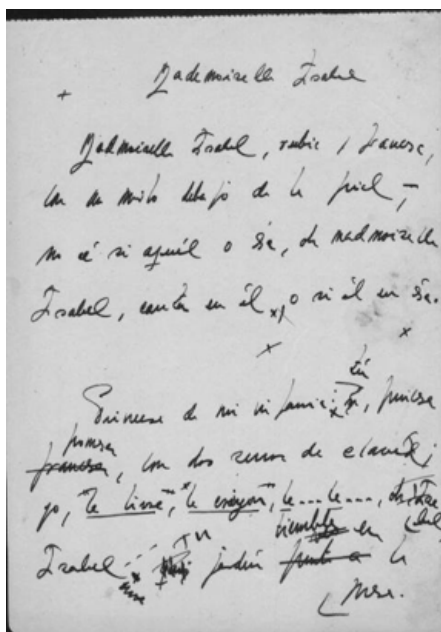 Mademoiselle Isabel
Mademoiselle Isabel, rubia y francesa,
con un mirlo debajo de la piel,
no sé si aquél o ésa, oh mademoiselle
Isabel, canta en él o si él en ésa.
tú
Princesa de mi infancia; princesa
promesa
francesa, con dos senos de clavel;
yo, "le livre", "le crayon", le...le..., oh Isa
bel
Isabel... tu jardín en la
mesa.